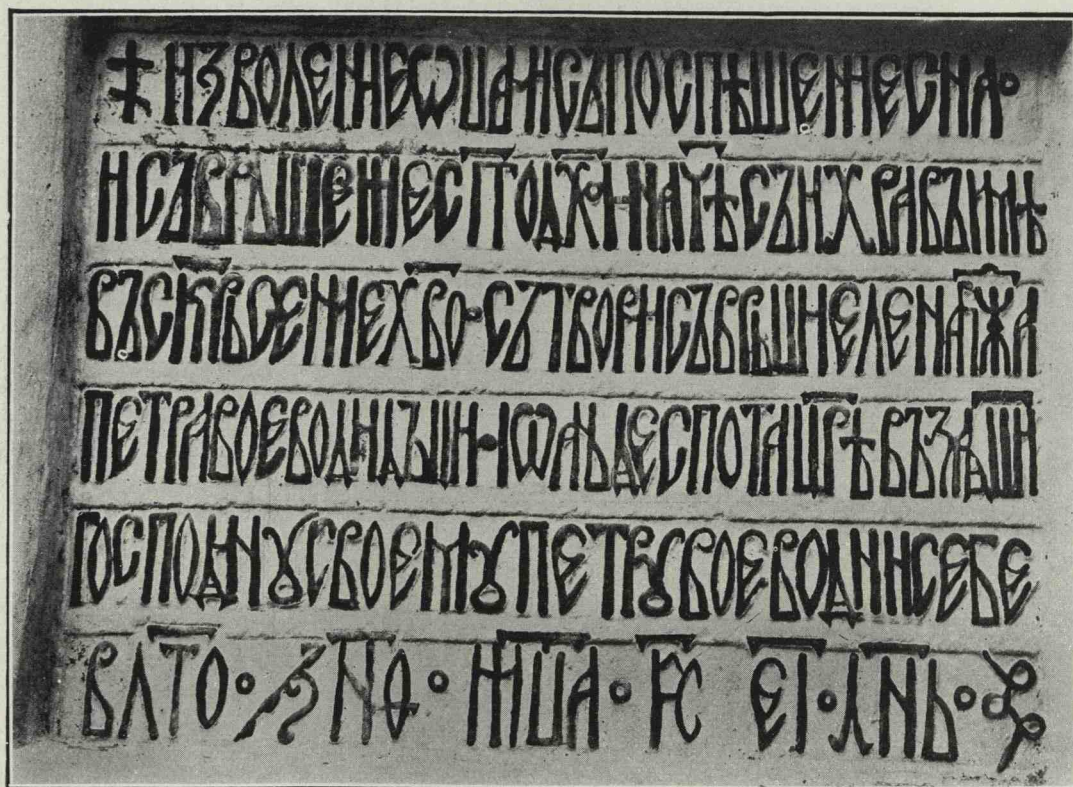 ‡ ИЗВОЛЕНЇЕѠЦА·ИСЪПОСПѢШЕНЇЕСНА·
ИСЪВРЪШЕНЇЕСТ҃ОДХ҃А·ИНАЧ҃ѦСѦИХРАВЪИМѢ
ВЪСКР҃ЬСЕНЇЕХ҃ВО·СЪТВОРИСЪВРЪШИЕЛЕНАГ҃ЖА
ПЕТРАВОЕВОДИДЪЩИ·ІѠАНАДЕСПОТАЦР҃ѢВЪЗАДШ҃И
ГОСПОДИНꙊСВОЕМꙊПЕТРꙊВОЕВОДИИСЕБЕ
ВЛТ҃О·ЗН҃Ѳ·МЦ҃А·ГЄ҃ ЕІ҃·ДН҃Ь·